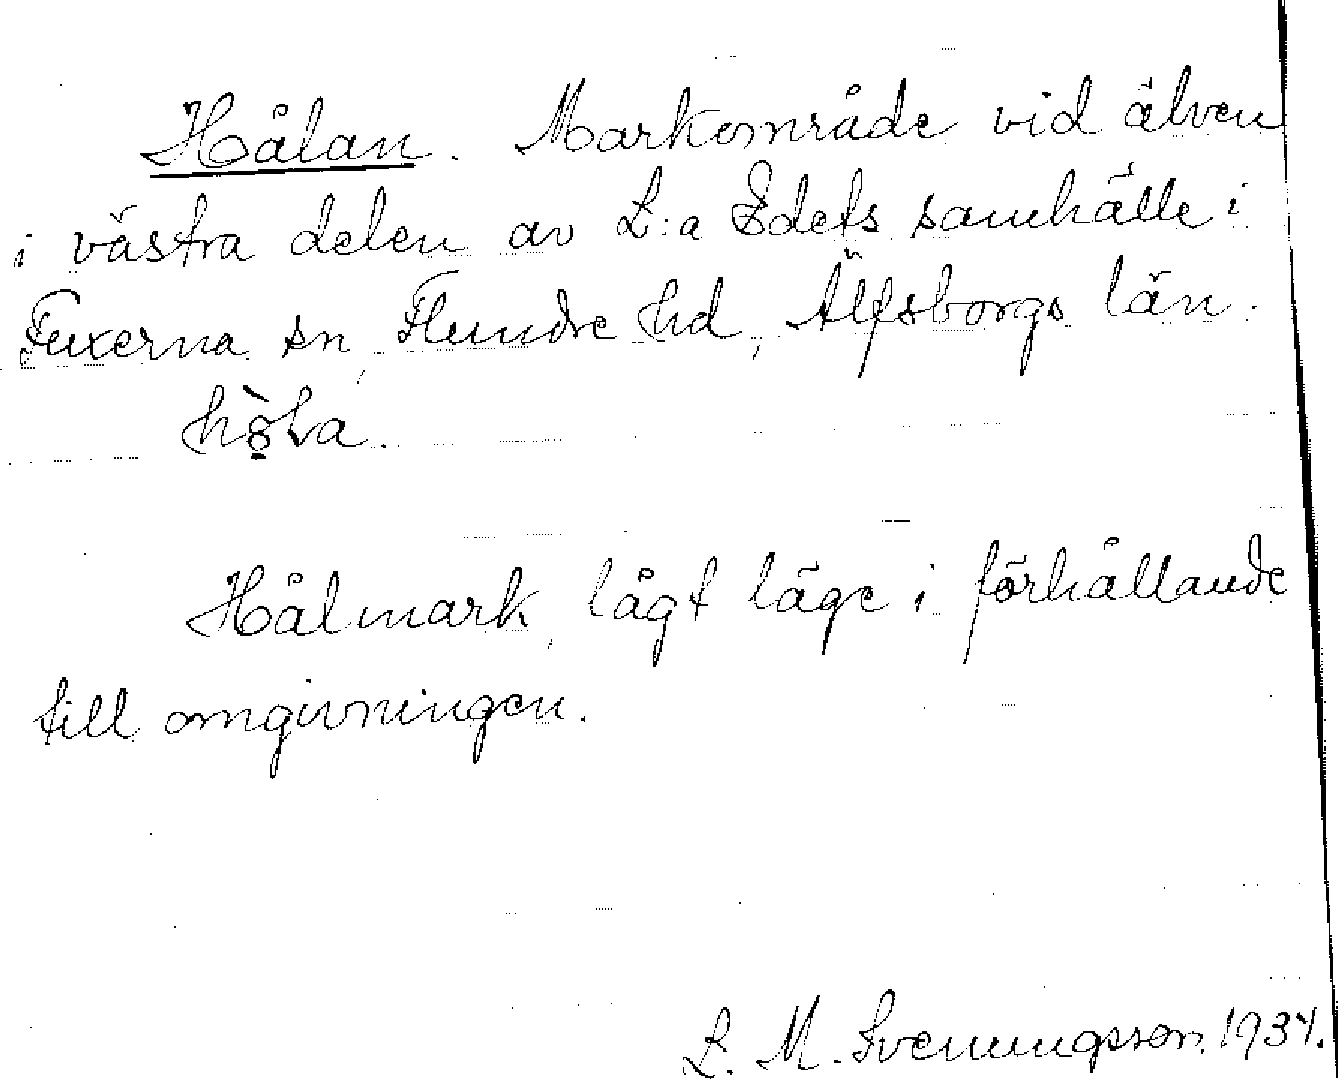 Hålan. Markområde vid älven
i västra delen av L:a Edets samhälle i
Fuxerna sn, Flundre hd, Älfsborgs län.
Hålmark, lågt läge i förhållande
till omgivningen.
L. M. Svenungsson. 1934.